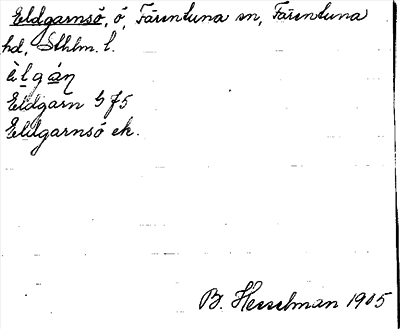 Eldgarnsö, ö, Färentuna sn, Färentuna
hd, Sthlm. l.
èlgán
Eldgarn G f5
Eldgarnsö ek.
B. Hesselman 1905